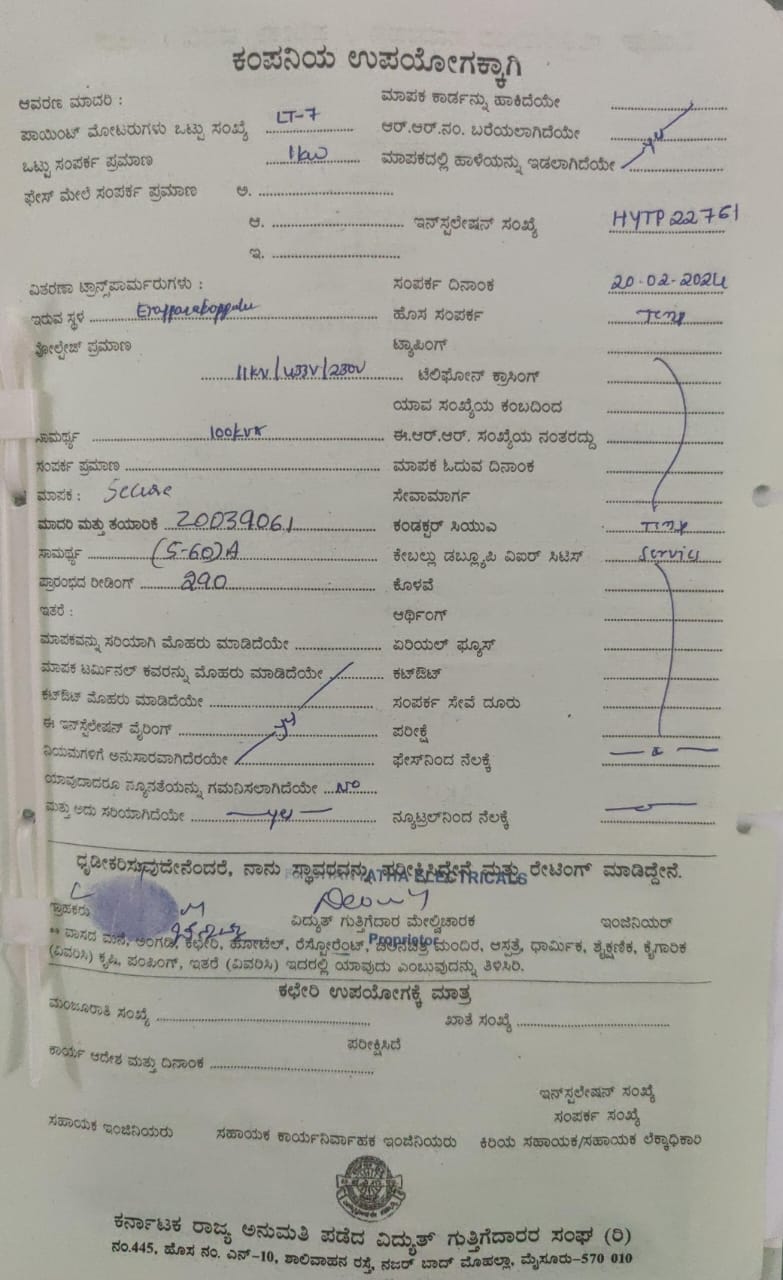 ಕಂಪನಿಯ ಉಪಯೋಗಕ್ಕಾಗಿ
ಆವರಣ ಮಾದರಿ : ಮಾಪಕ ಕಾರ್ಡನ್ನು ಹಾಕಿದೆಯೇ
ಪಾಯಿಂಟ್ ಮೋಟರುಗಳು ಒಟ್ಟು ಸಂಖ್ಯೆ LT-7 ಆರ್.ಆರ್.ನಂ. ಬರೆಯಲಾಗಿದೆಯೇ
ಒಟ್ಟು ಸಂಪರ್ಕ ಪ್ರಮಾಣ 1kw ಮಾಪಕದಲ್ಲಿ ಹಾಳೆಯನ್ನು ಇಡಲಾಗಿದೆಯೇ
ಫೇಸ್ ಮೇಲೆ ಸಂಪರ್ಕ ಪ್ರಮಾಣ ಅ.
ಆ. ಇನ್‌ಸ್ಟಲೇಷನ್ ಸಂಖ್ಯೆ HYTP22761
ಇ.
ವಿತರಣಾ ಟ್ರಾನ್ಸ್‌ಫಾರ್ಮರುಗಳು : ಸಂಪರ್ಕ ದಿನಾಂಕ 20-02-2024
ಇರುವ ಸ್ಥಳ ಹೊಸ ಸಂಪರ್ಕ Temp
ವೋಲ್ಟೇಜ್ ಪ್ರಮಾಣ ಟ್ಯಾಪಿಂಗ್
11KV/433V/230V ಟೆಲಿಫೋನ್ ಕ್ರಾಸಿಂಗ್
ಯಾವ ಸಂಖ್ಯೆಯ ಕಂಬದಿಂದ
ಸಾಮರ್ಥ್ಯ 100KVA ಈ.ಆರ್.ಆರ್. ಸಂಖ್ಯೆಯ ನಂತರದ್ದು
ಸಂಪರ್ಕ ಪ್ರಮಾಣ ಮಾಪಕ ಓದುವ ದಿನಾಂಕ
ಮಾಪಕ : Secure ಸೇವಾಮಾರ್ಗ
ಮಾದರಿ ಮತ್ತು ತಯಾರಿಕೆ 20039061 ಕಂಡಕ್ಟರ್ ಸಿಯುವಿ Temp
ಸಾಮರ್ಥ್ಯ (5-60)A ಕೇಬಲ್ಲು ಡಬ್ಲ್ಯೂಪಿ ವಿಐರ್ ಸಿಟಿಸ್ Service
ಪ್ರಾರಂಭದ ರೀಡಿಂಗ್ 290 ಕೊಳವೆ
ಇತರೆ : ಆರ್ಥಿಂಗ್
ಮಾಪಕವನ್ನು ಸರಿಯಾಗಿ ಮೊಹರು ಮಾಡಿದೆಯೇ ಏರಿಯಲ್ ಫ್ಯೂಸ್
ಮಾಪಕ ಟರ್ಮಿನಲ್ ಕವರನ್ನು ಮೊಹರು ಮಾಡಿದೆಯೇ ಕಟ್‌ಔಟ್
ಕಟ್‌ಔಟ್ ಮೊಹರು ಮಾಡಿದೆಯೇ ಸಂಪರ್ಕ ಸೇವೆ ದೂರು
ಈ ಇನ್‌ಸ್ಟಲೇಷನ್ ವೈರಿಂಗ್ ಪರೀಕ್ಷೆ
ನಿಯಮಗಳಿಗೆ ಅನುಸಾರವಾಗಿದೆರಯೇ ಫೇಸ್‌ನಿಂದ ನೆಲಕ್ಕೆ
ಯಾವುದಾದರೂ ನ್ಯೂನತೆಯನ್ನು ಗಮನಿಸಲಾಗಿದೆಯೇ No
ಮತ್ತು ಅದು ಸರಿಯಾಗಿದೆಯೇ yes ನ್ಯೂಟ್ರಲ್‌ನಿಂದ ನೆಲಕ್ಕೆ
ಧೃಡೀಕರಿಸುವುದೇನೆಂದರೆ, ನಾನು ಸ್ಥಾವರವನ್ನು ಪರೀಕ್ಷಿಸಿದ್ದೇನೆ ಮತ್ತು ರೇಟಿಂಗ್ ಮಾಡಿದ್ದೇನೆ.
ELECTRICALS
ಗ್ರಾಹಕರು ವಿದ್ಯುತ್ ಗುತ್ತಿಗೆದಾರ ಮೇಲ್ವಿಚಾರಕ ಇಂಜಿನಿಯರ್
Proprietor
** ವಾಸದ ಮನೆ, ಅಂಗಡಿ, ಕಛೇರಿ, ಹೋಟೆಲ್, ರೆಸ್ಟೋರೆಂಟ್, ಚಲನಚಿತ್ರ ಮಂದಿರ, ಆಸ್ಪತ್ರೆ, ಧಾರ್ಮಿಕ, ಶೈಕ್ಷಣಿಕ, ಕೈಗಾರಿಕ
(ವಿವರಿಸಿ) ಕೃಷಿ, ಪಂಪಿಂಗ್, ಇತರೆ (ವಿವರಿಸಿ) ಇದರಲ್ಲಿ ಯಾವುದು ಎಂಬುವುದನ್ನು ತಿಳಿಸಿರಿ.
ಕಛೇರಿ ಉಪಯೋಗಕ್ಕೆ ಮಾತ್ರ
ಮಂಜೂರಾತಿ ಸಂಖ್ಯೆ ಖಾತೆ ಸಂಖ್ಯೆ
ಪರೀಕ್ಷಿಸಿದೆ
ಕಾರ್ಯ ಆದೇಶ ಮತ್ತು ದಿನಾಂಕ
ಇನ್‌ಸ್ಟಲೇಷನ್ ಸಂಖ್ಯೆ
ಸಂಪರ್ಕ ಸಂಖ್ಯೆ
ಸಹಾಯಕ ಇಂಜಿನಿಯರು ಸಹಾಯಕ ಕಾರ್ಯನಿರ್ವಾಹಕ ಇಂಜಿನಿಯರು ಕಿರಿಯ ಸಹಾಯಕ/ಸಹಾಯಕ ಲೆಕ್ಕಾಧಿಕಾರಿ
ಕರ್ನಾಟಕ ರಾಜ್ಯ ಅನುಮತಿ ಪಡೆದ ವಿದ್ಯುತ್ ಗುತ್ತಿಗೆದಾರರ ಸಂಘ (ರಿ)
ನಂ.445, ಹೊಸ ನಂ. ಎನ್-10, ಶಾಲಿವಾಹನ ರಸ್ತೆ, ನಜರ್ ಬಾದ್ ಮೊಹಲ್ಲಾ, ಮೈಸೂರು-570 010